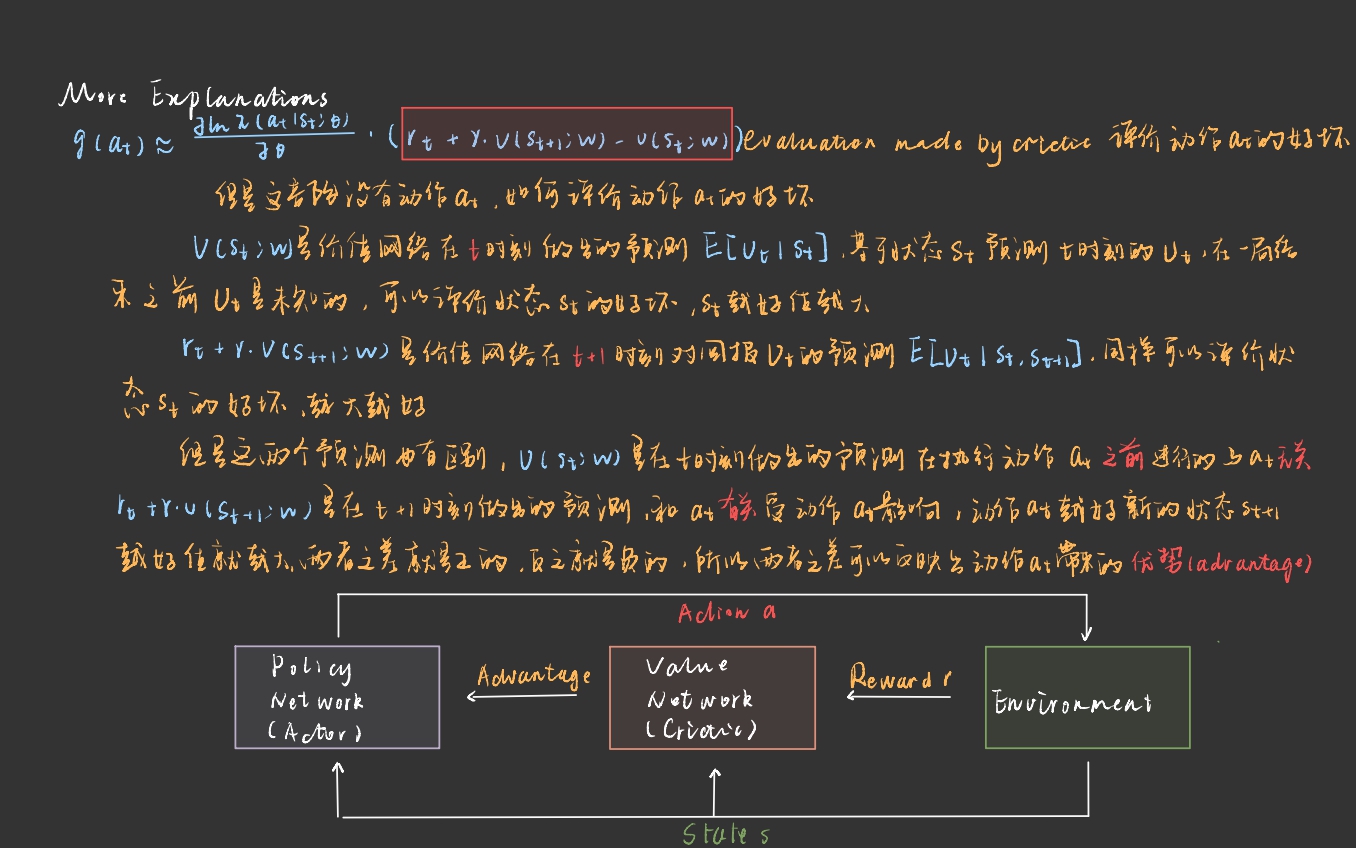 More Explanations
g(aₜ) ≈ ∂ln π(aₜ|sₜ;θ) / ∂θ · (rₜ + γ·v(sₜ₊₁;w) - v(sₜ;w)) evaluation made by crictic 评价动作aₜ的好坏
但是这音阶没有动作aₜ,如何评价动作aₜ的好坏
V(sₜ;w)是价值网络在t时刻做出的预测 E[Uₜ|sₜ],基于状态sₜ预测t时刻的Uₜ,在一局结
束之前Uₜ是未知的,可以评价状态sₜ的好坏,sₜ越好值越大
rₜ + γ·V(sₜ₊₁;w)是价值网络在t+1时刻对回报Uₜ的预测 E[Uₜ|sₜ,sₜ₊₁],同样可以评价状
态sₜ的好坏,越大越好
但是这两个预测也有区别,v(sₜ;w)是在t时刻做出的预测在执行动作aₜ之前进行的与aₜ无关
rₜ+γ·v(sₜ₊₁;w)是在t+1时刻做出的预测,和aₜ有关受动作aₜ影响,动作aₜ越好新的状态sₜ₊₁
越好值就越大,两者之差就是正的,反之就是负的,所以两者之差可以反映出动作aₜ带来的优势(advantage)
Action a
Policy
Network
(Actor)
Advantage
Value
Network
(Criotic)
Reward r
Environment
State s